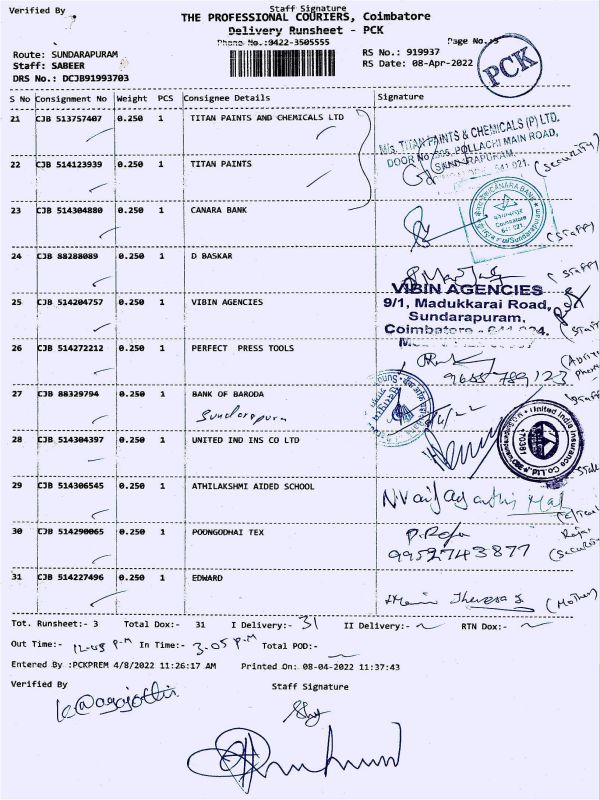 Verified By Staff Signature
THE PROFESSIONAL COURIERS, Coimbatore
Delivery Runsheet - PCK
Phone No.:0422-3505555 Page No.:3
Route: SUNDARAPURAM RS No.: 919937
Staff: SABEER RS Date: 08-Apr-2022
DRS No.: DCJB91993703
PCK
S No Consignment No Weight PCS Consignee Details Signature
21 CJB 513757407 0.250 1 TITAN PAINTS AND CHEMICALS LTD
M/s. TITAN PAINTS & CHEMICALS (P) LTD.
DOOR No. 505, POLLACHI MAIN ROAD,
SUNDARAPURAM,
641 021. (Security)
22 CJB 514123939 0.250 1 TITAN PAINTS
23 CJB 514304880 0.250 1 CANARA BANK
CANARA BANK Coimbatore 641 021. Sundarapuram (Staff)
24 CJB 88288089 0.250 1 D BASKAR (Staff)
25 CJB 514204757 0.250 1 VIBIN AGENCIES
VIBIN AGENCIES
9/1, Madukkarai Road,
Sundarapuram,
Coimbatore - 641 024.
26 CJB 514272212 0.250 1 PERFECT PRESS TOOLS
9655789123
27 CJB 88329794 0.250 1 BANK OF BARODA
Sundarapuram
28 CJB 514304397 0.250 1 UNITED IND INS CO LTD
United India Insurance Co. Ltd. 170381
29 CJB 514306545 0.250 1 ATHILAKSHMI AIDED SCHOOL
30 CJB 514290065 0.250 1 POONGODHAI TEX
P. Raja
9952743877
31 CJB 514227496 0.250 1 EDWARD
Theresa (Mother)
Tot. Runsheet:- 3 Total Dox:- 31 I Delivery:- 31 II Delivery:- RTN Dox:-
Out Time:- 12.45 P.M In Time:- 3.05 P.M Total POD:-
Entered By :PCKPREM 4/8/2022 11:26:17 AM Printed On: 08-04-2022 11:37:43
Verified By Staff Signature